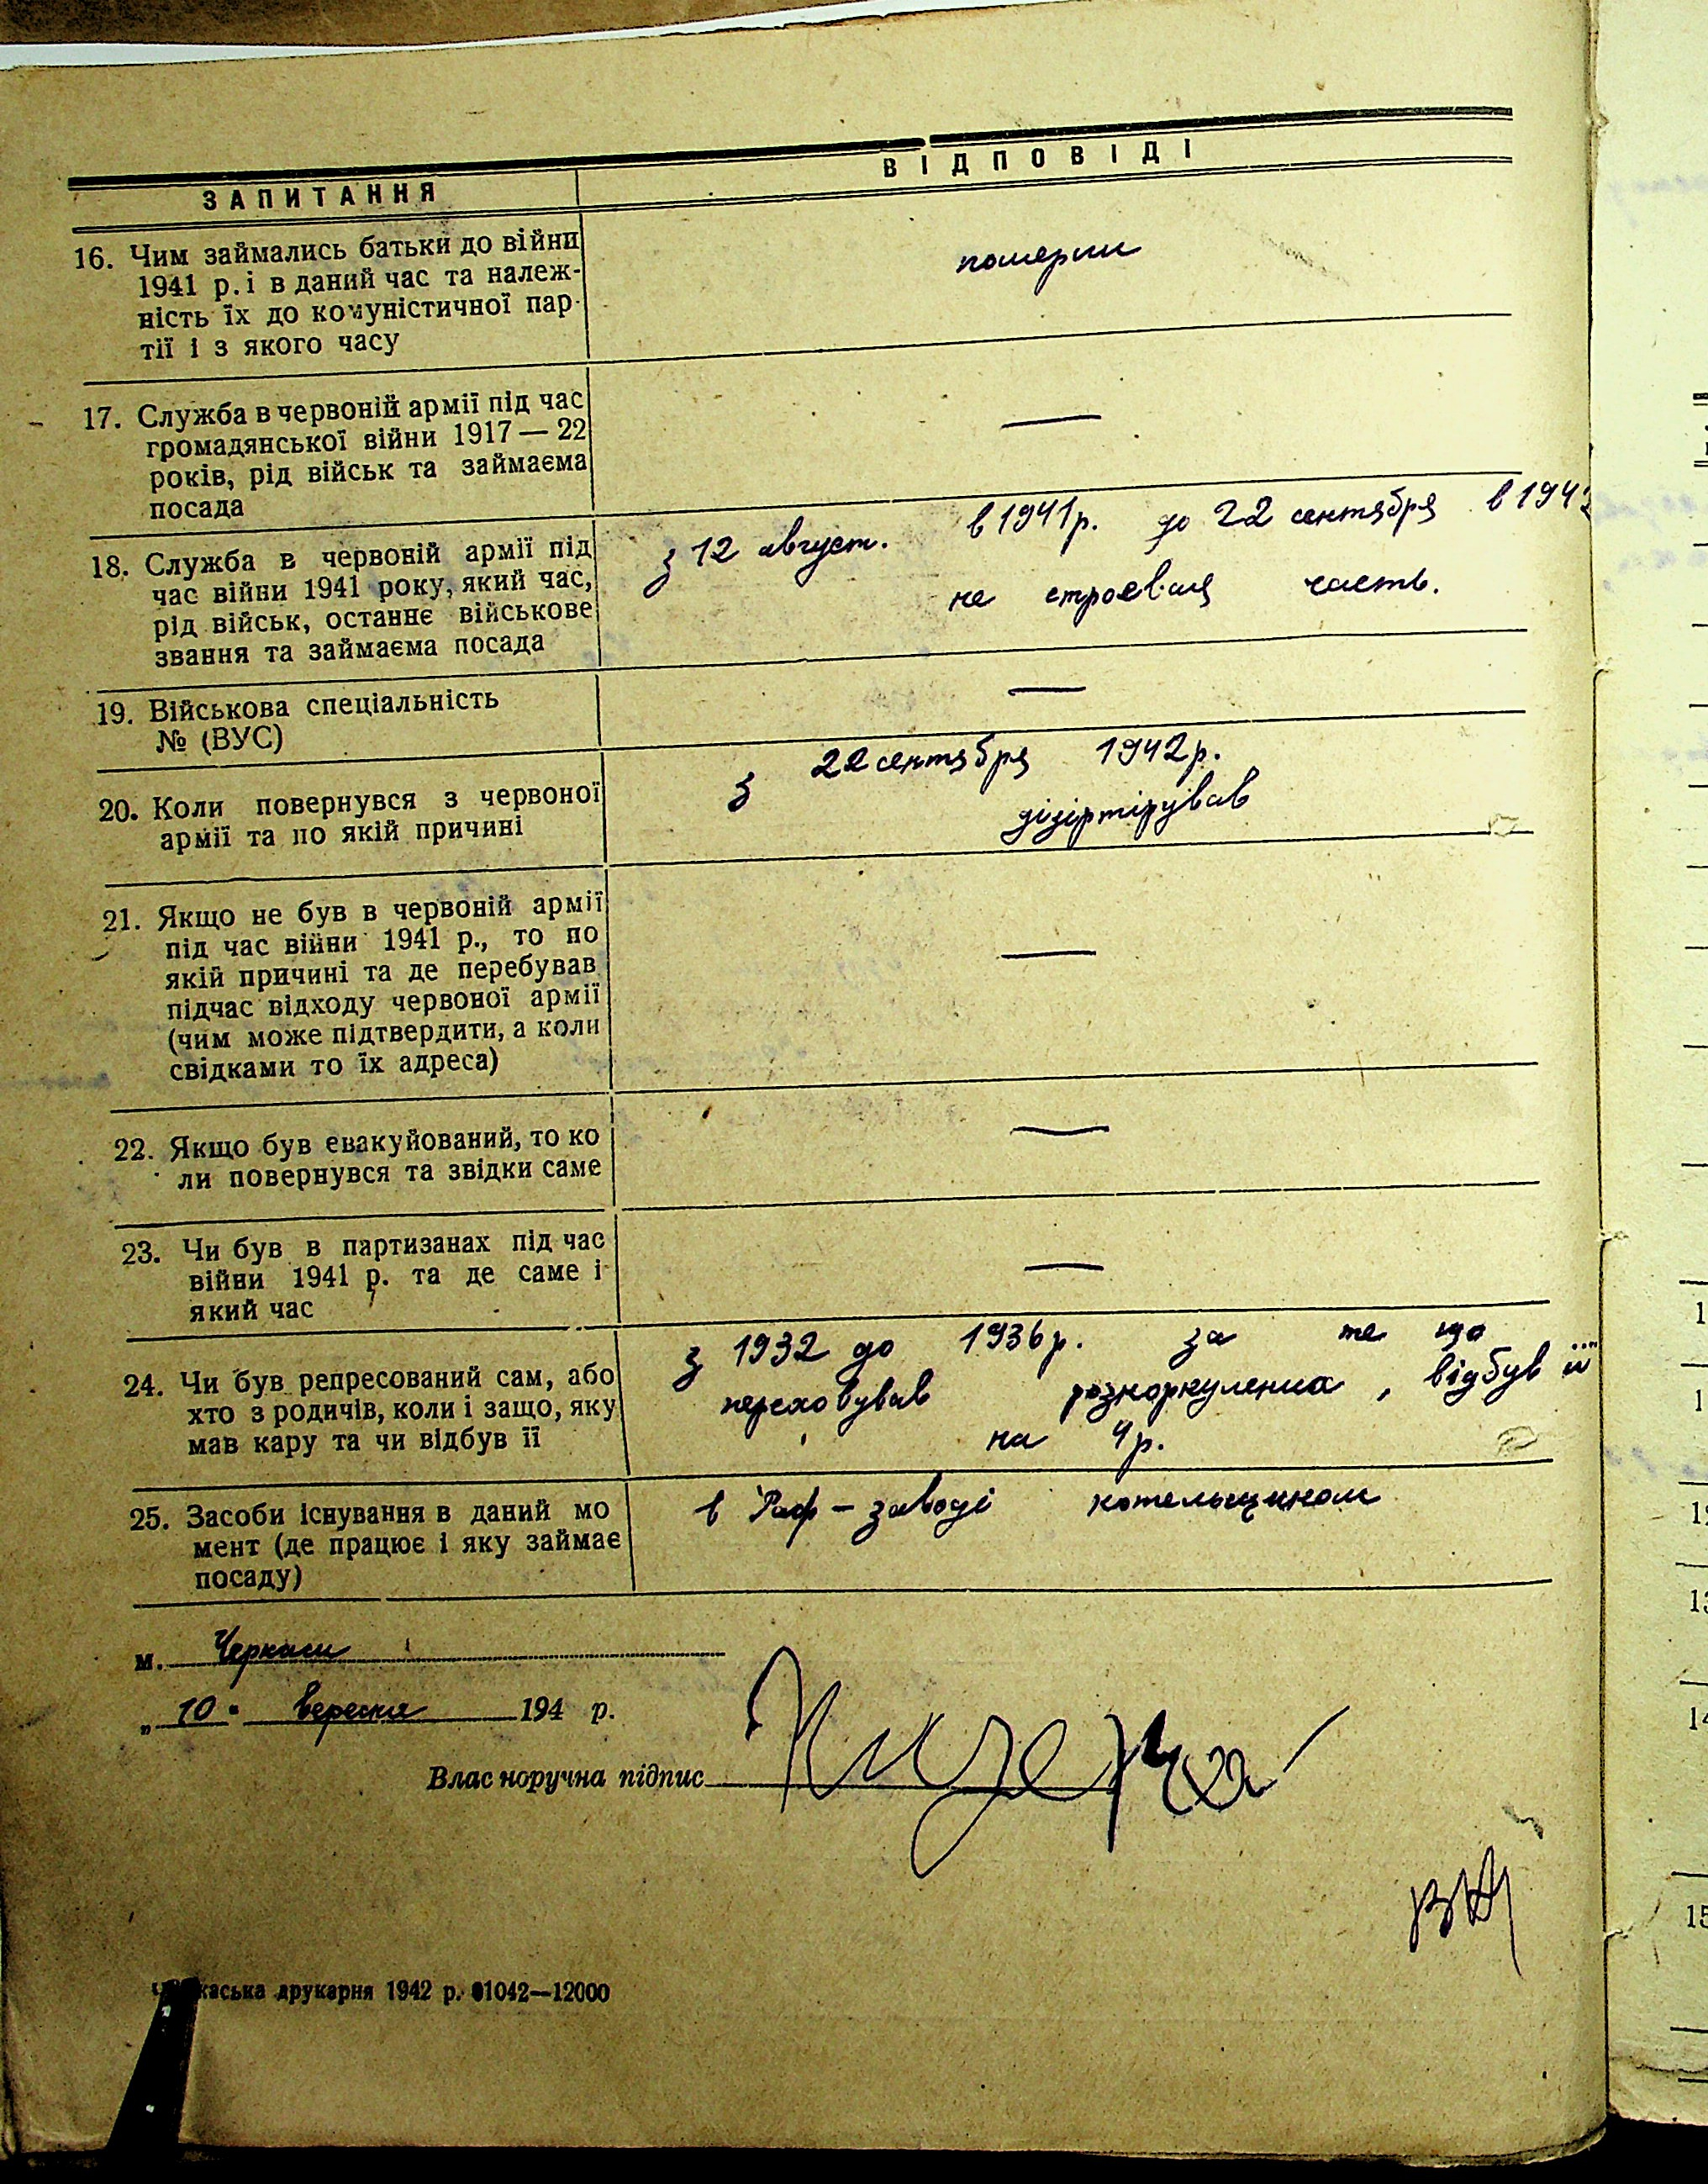 ЗАПИТАННЯ
ВІДПОВІДІ
16. Чим займались батьки до війни
1941 р. і в даний час та належ-
ність їх до комуністичної пар-
тії і з якого часу
померли
17. Служба в червоній армії під час
громадянської війни 1917 — 22
років, рід військ та займаєма
посада
—
18. Служба в червоній армії під
час війни 1941 року, який час,
рід військ, останнє військове
звання та займаєма посада
з 12 август. в 1941р. до 22 сентября в 194
не строевая часть.
19. Військова спеціальність
№ (ВУС)
—
20. Коли повернувся з червоної
армії та по якій причині
з 22 сентября 1942р.
дізіртірував
21. Якщо не був в червоній армії
під час війни 1941 р., то по
якій причині та де перебував
підчас відходу червоної армії
(чим може підтвердити, а коли
свідками то їх адреса)
—
22. Якщо був евакуйований, то ко
ли повернувся та звідки саме
—
23. Чи був в партизанах під час
війни 1941 р. та де саме і
який час
—
24. Чи був репресований сам, або
хто з родичів, коли і защо, яку
мав кару та чи відбув її
з 1932 до 1936р. за те що
переховував розкоркуленна, відбув її
на 4р.
25. Засоби існування в даний мо
мент (де працює і яку займає
посаду)
в Раф - заводі котельщиком
м. Черкаси
„ 10 " вересня 194 р.
Власноручна підпис
каська друкарня 1942 р. 01042—12000